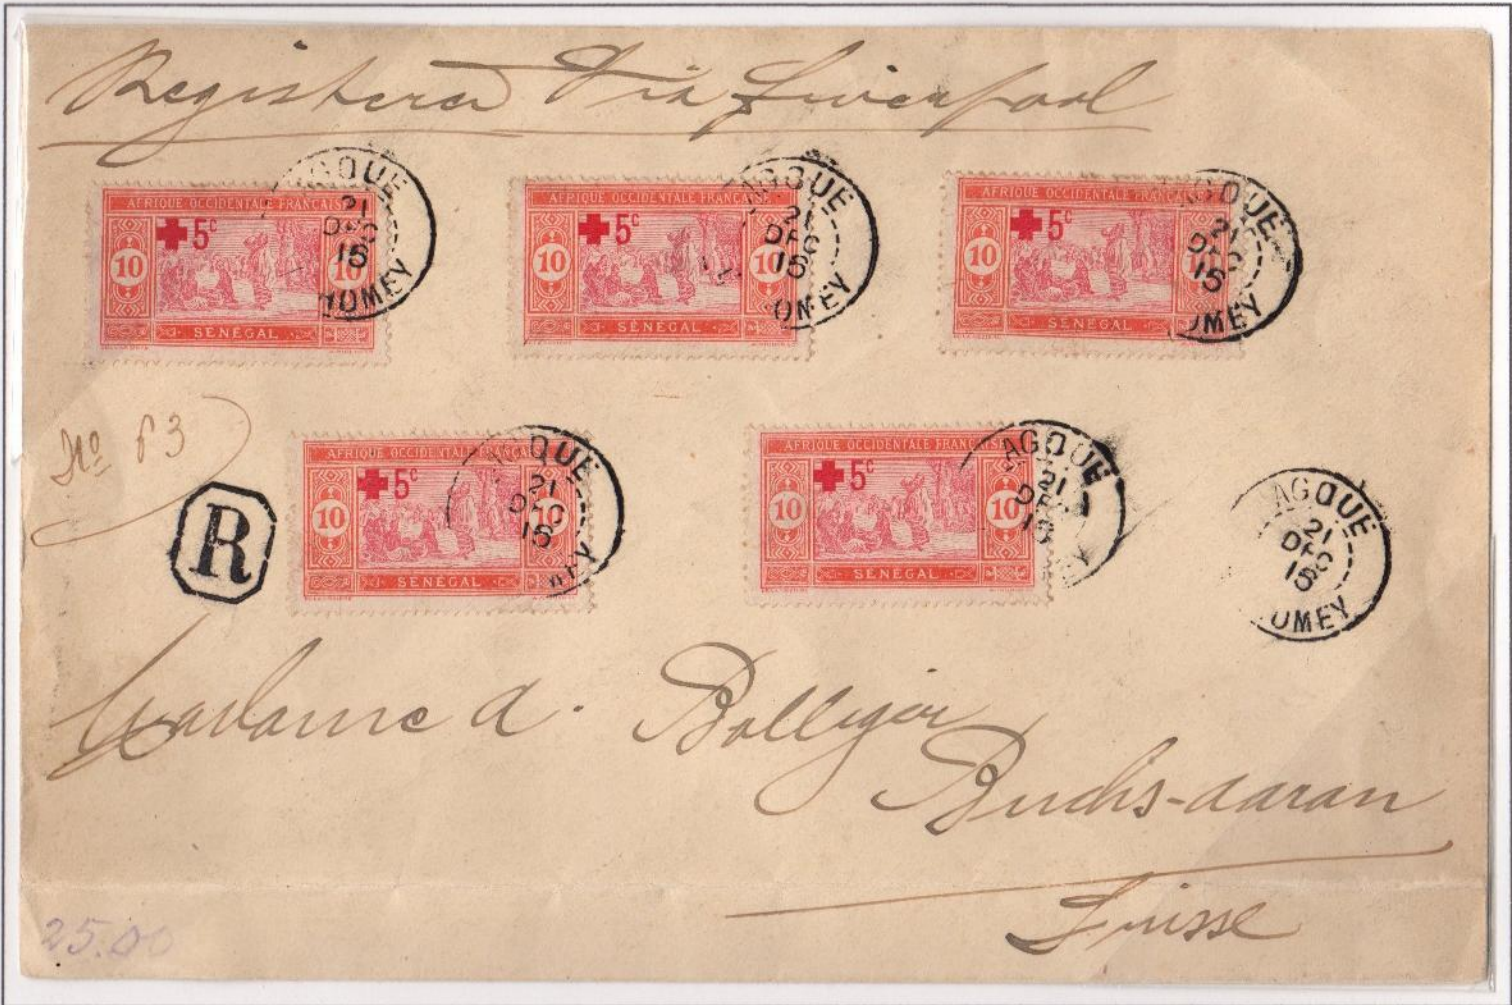 Registered Via Liverpool
AFRIQUE OCCIDENTALE FRANÇAISE
5c
10 10
SÉNÉGAL
AGOUE
21
DEC
15
HOMEY
AFRIQUE OCCIDENTALE FRANÇAISE
5c
10 10
SÉNÉGAL
AGOUE
21
DEC
15
OMEY
AFRIQUE OCCIDENTALE FRANÇAISE
5c
10 10
SÉNÉGAL
AGOUE
21
DEC
15
OMEY
No 83
R
AFRIQUE OCCIDENTALE FRANÇAISE
5c
10 10
SÉNÉGAL
AGOUE
21
DEC
15
MEY
AFRIQUE OCCIDENTALE FRANÇAISE
5c
10 10
SÉNÉGAL
AGOUE
21
DEC
15
EY
AGOUE
21
DEC
15
OMEY
Madame A. Bolliger
Buchs-Aarau
Suisse
25.00